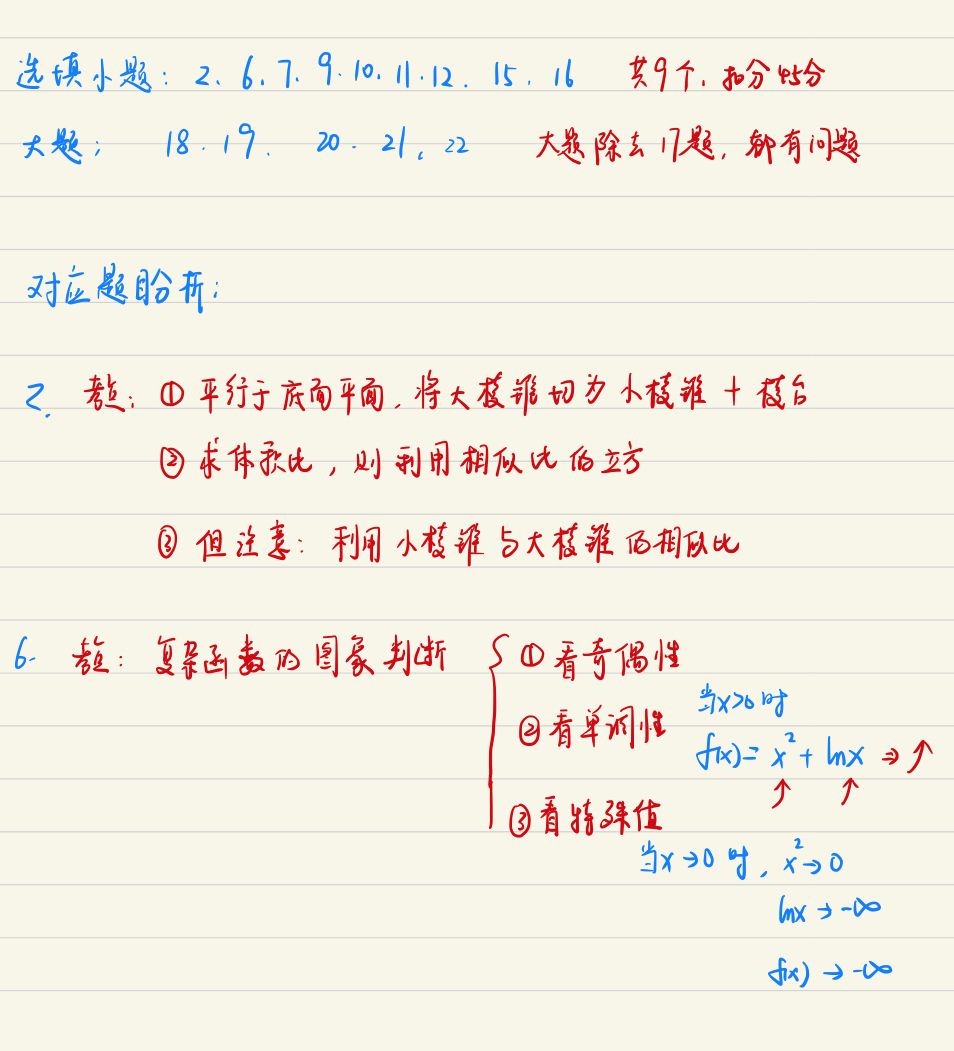 选填小题：2、6、7、9、10、11、12、15、16 共9个，扣分45分
大题： 18、19、20、21、22 大题除去17题，都有问题
对应题目分析：
2. 考点：① 平行于底面平面，将大棱锥切为小棱锥 + 棱台
② 求体积比，则利用相似比的立方
③ 但注意：利用小棱锥与大棱锥的相似比
6. 考点：复杂函数的图象判断 ① 看奇偶性
② 看单调性 当x>0时
f(x)= x² + lnx ⇒ ↑
↑ ↑
③ 看特殊值
当x→0时，x²→0
lnx → -∞
f(x) → -∞